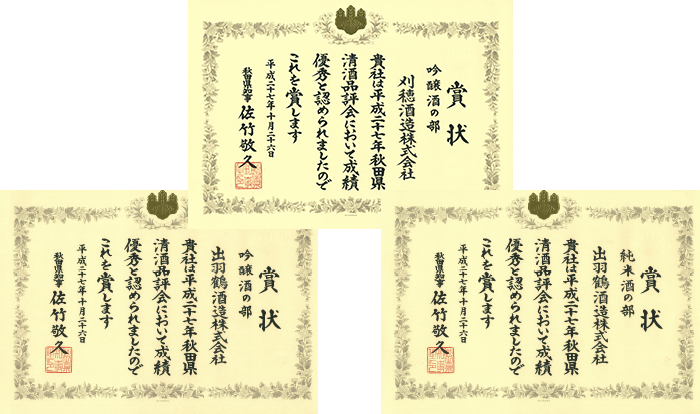 賞状
吟醸酒の部
刈穂酒造株式会社
貴社は平成二十七年秋田県
清酒品評会において成績
優秀と認められましたので
これを賞します
平成二十七年十月二十六日
秋田県知事 佐竹敬久
賞状
吟醸酒の部
出羽鶴酒造株式会社
貴社は平成二十七年秋田県
清酒品評会において成績
優秀と認められましたので
これを賞します
平成二十七年十月二十六日
秋田県知事 佐竹敬久
賞状
純米酒の部
出羽鶴酒造株式会社
貴社は平成二十七年秋田県
清酒品評会において成績
優秀と認められましたので
これを賞します
平成二十七年十月二十六日
秋田県知事 佐竹敬久